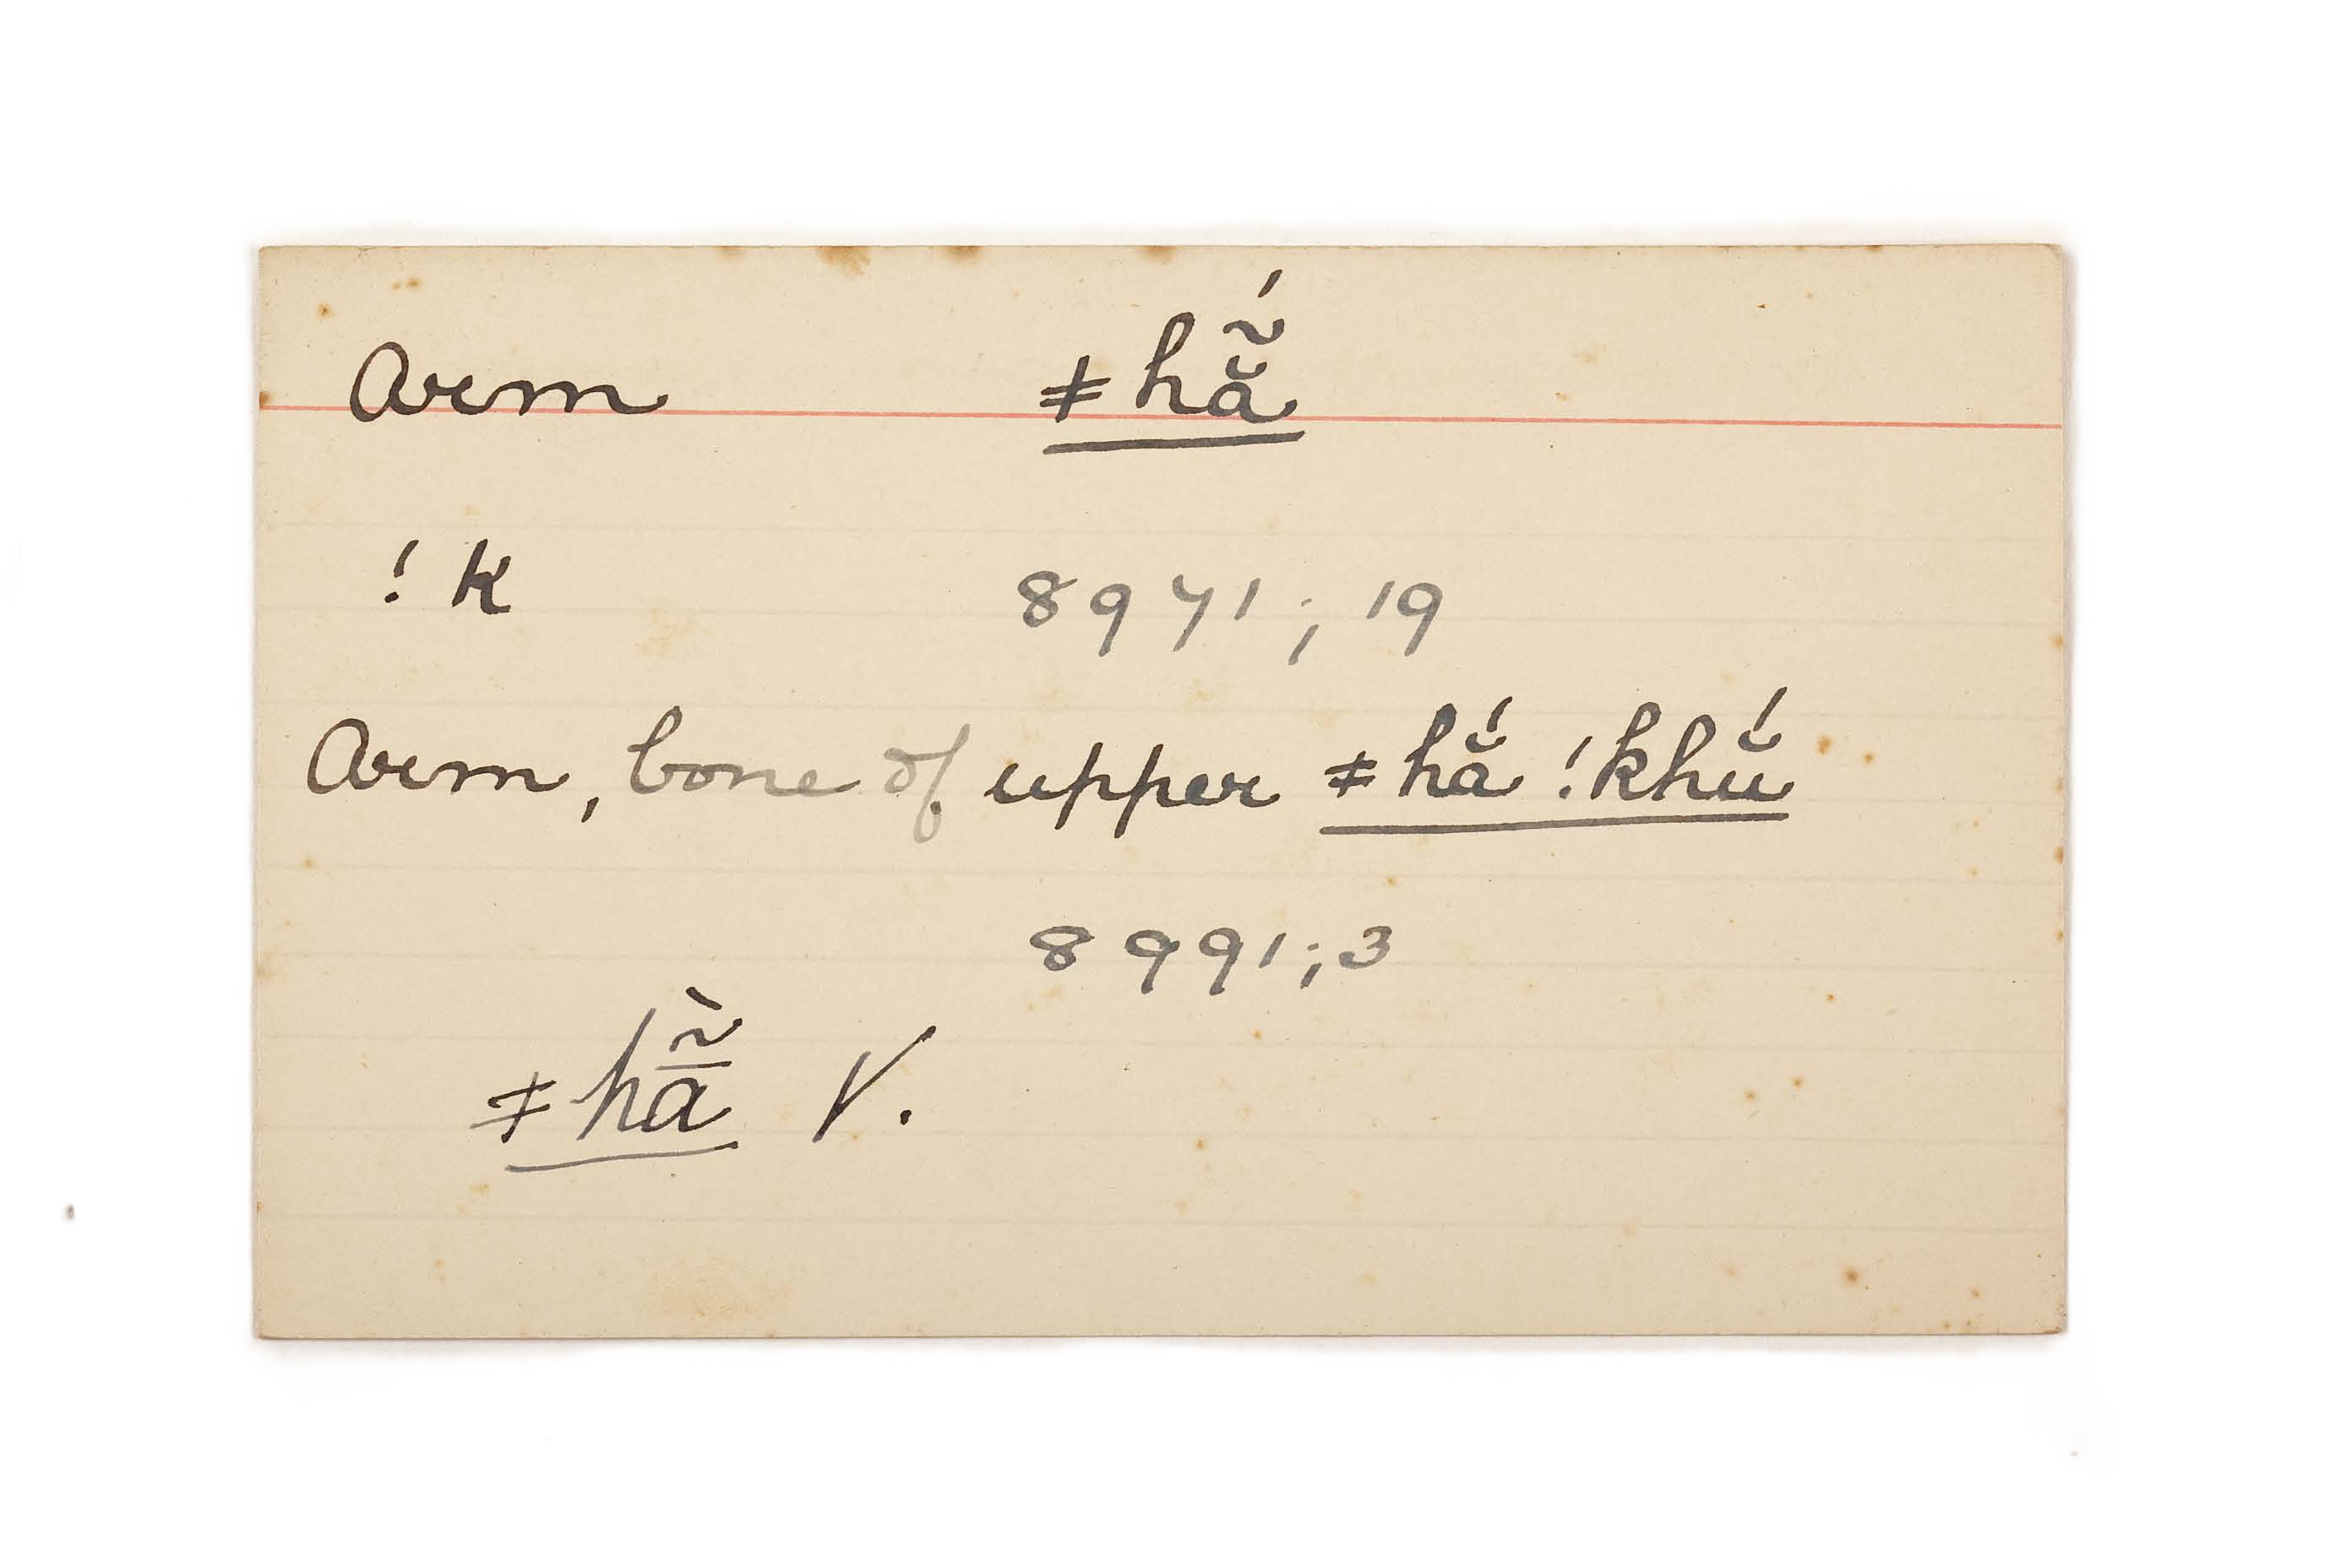 Arm ǂhẵ́
!k 8971; 19
Arm, bone of upper ǂhắ !khŭ́
8991; 3
ǂhā̃̀ V.